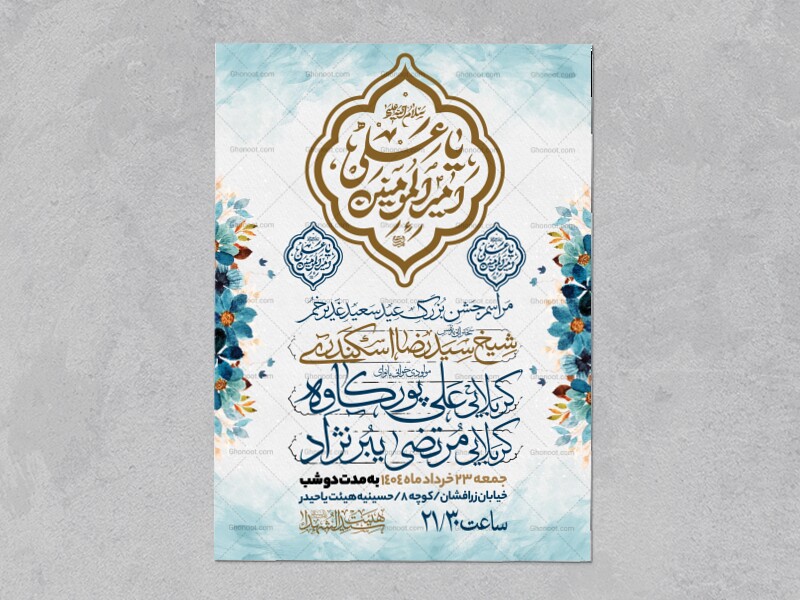 سلام الله علیه
یا علی
امیرالمومنین
مراسم جشن بزرگ عید سعید غدیر خم
شیخ سید رضا اسکندری
مولودی خوانی با نوای
کربلایی علی پور کاوه
کربلایی مرتضی ببر نژاد
جمعه ۲۳ خرداد ماه ۱۴۰۴ به مدت دو شب
خیابان زرافشان / کوچه ۸ / حسینیه هیئت یا حیدر
ساعت ۲۱/۳۰
هیئت سیدالشهدا
Ghonoot.com